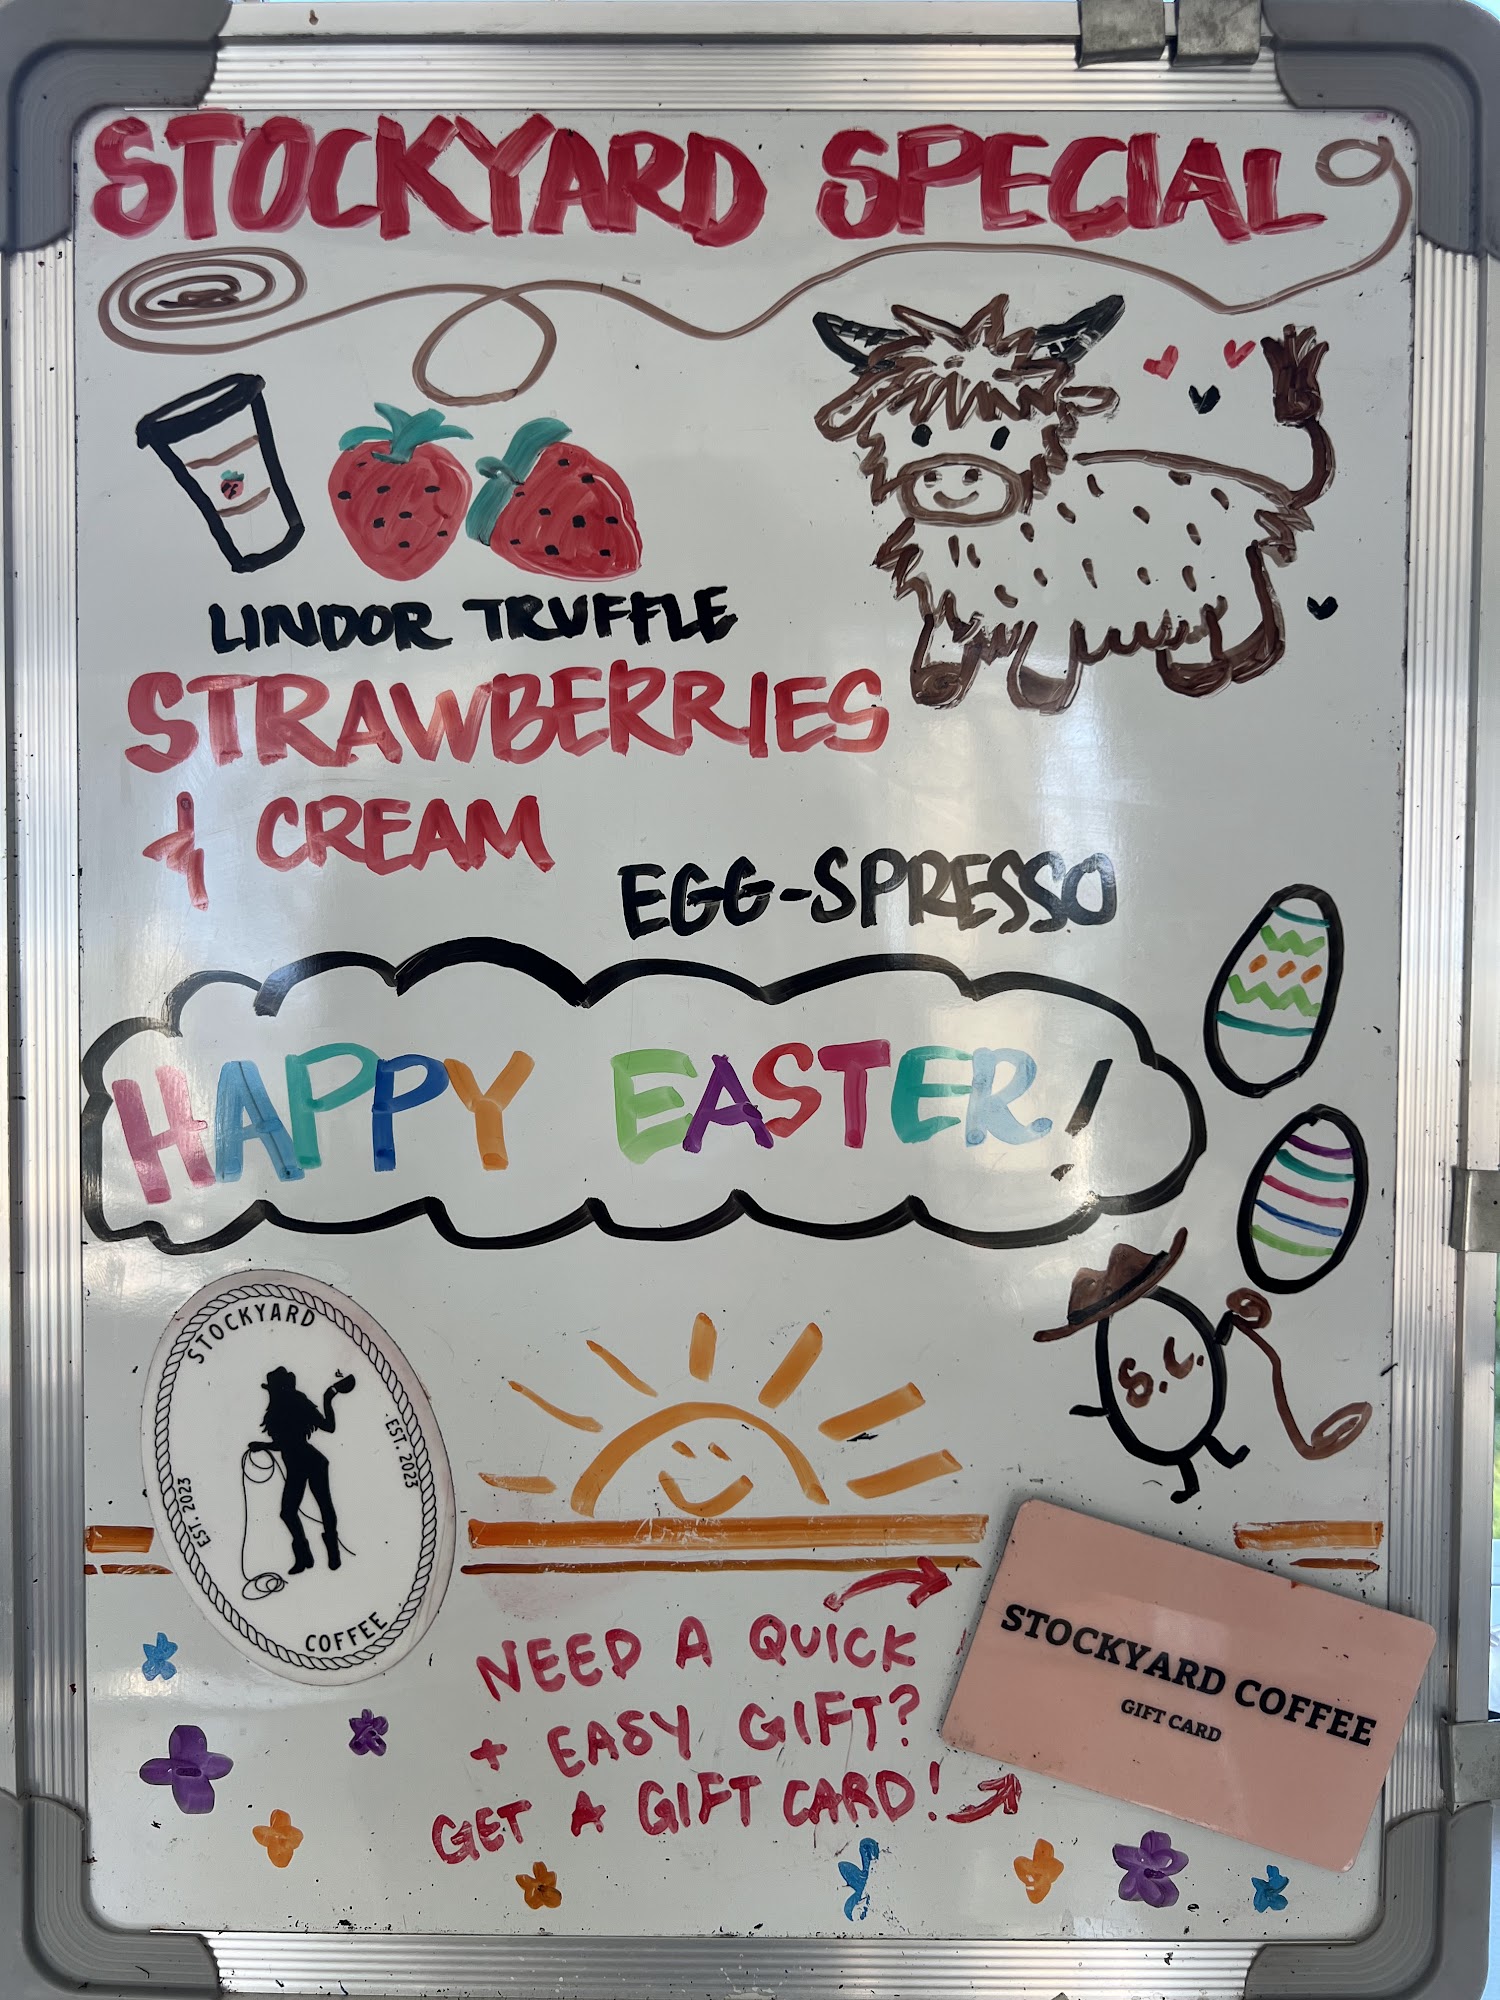 STOCKYARD SPECIAL
LINDOR TRUFFLE
STRAWBERRIES
& CREAM
EGG-SPRESSO
HAPPY EASTER!
S.C.
STOCKYARD
EST. 2023
EST. 2023
COFFEE
NEED A QUICK
+ EASY GIFT?
GET A GIFT CARD!
STOCKYARD COFFEE
GIFT CARD